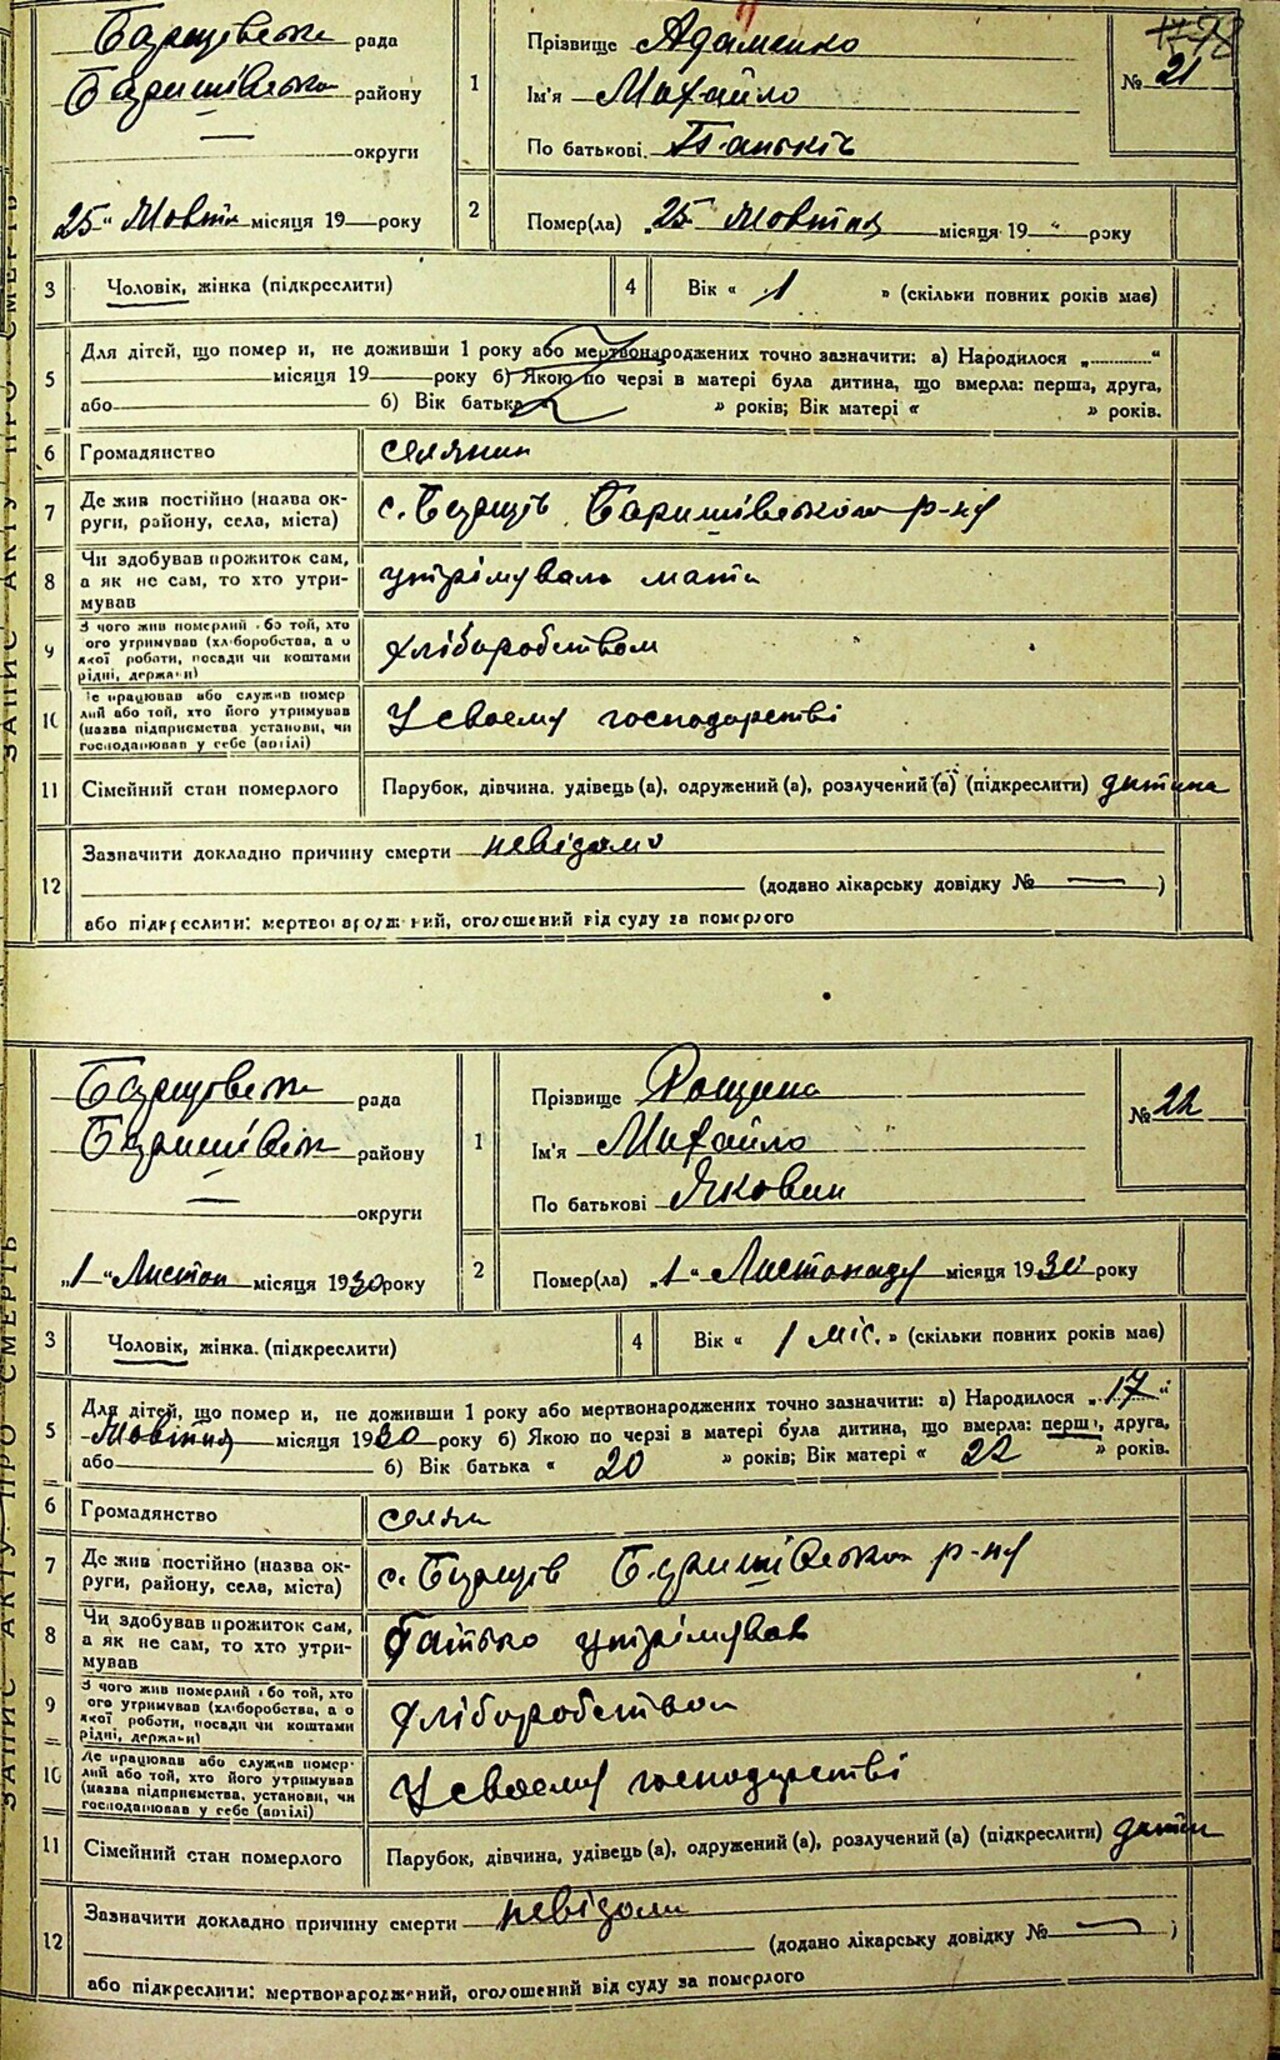 ЗАПИС АКТУ ПРО СМЕРТЬ
рада
району
— округи
"25" Жовтн місяця 19 — року
1
Прізвище Адаменко
Ім'я Михайло
По батькові
№ 21
2
Помер(ла) "25 Жовтня місяця 19 " року
3
Чоловік, жінка (підкреслити)
4
Вік « 1 » (скільки повних років має)
5
Для дітей, що помер и, не доживши 1 року або мертвонароджених точно зазначити: а) Народилося „ “
місяця 19 року б) Якою по черзі в матері була дитина, що вмерла: перша, друга,
або б) Вік батька « » років; Вік матері « » років.
6
Громадянство
селянин
7
Де жив постійно (назва ок-
руги, району, села, міста)
с. Баришівського р-ну
8
Чи здобував прожиток сам,
а як не сам, то хто утри-
мував
утрімувала мати
9
З чого жив померлий або той, хто
ого утримував (хліборобства, а о
якої роботи, посади чи коштами
рідні, держави)
хліборобством
10
Де працював або служив помер
лий або той, хто його утримував
(назва підприємства, установи, чи
господарював у себе (артілі)
У своему господарстві
11
Сімейний стан померлого
Парубок, дівчина, удівець (а), одружений (а), розлучений (а) (підкреслити) дитина
12
Зазначити докладно причину смерти невідомо
(додано лікарську довідку № — )
або підкреслити: мертвонароджений, оголошений від суду за померлого
ЗАПИС АКТУ ПРО СМЕРТЬ
рада
району
— округи
„1“ Листоп місяця 1930 року
1
Прізвище
Ім'я Михайло
По батькові Якович
№ 22
2
Помер(ла) „1“ Листопаду місяця 1930 року
3
Чоловік, жінка. (підкреслити)
4
Вік « 1 міс. » (скільки повних років має)
5
Для дітей, що помер и, не доживши 1 року або мертвонароджених точно зазначити: а) Народилося „17“
Жовтня місяця 1930 року б) Якою по черзі в матері була дитина, що вмерла: перша, друга,
або б) Вік батька « 20 » років; Вік матері « 22 » років.
6
Громадянство
селян
7
Де жив постійно (назва ок-
руги, району, села, міста)
с. р-ну
8
Чи здобував прожиток сам,
а як не сам, то хто утри-
мував
батько утрімував
9
З чого жив померлий або той, хто
ого утримував (хліборобства, а о
якої роботи, посади чи коштами
рідні, держави)
хліборобством
10
Де працював або служив помер
лий або той, хто його утримував
(назва підприємства, установи, чи
господарював у себе (артілі)
У своему господарстві
11
Сімейний стан померлого
Парубок, дівчина, удівець (а), одружений (а), розлучений (а) (підкреслити) дитин
12
Зазначити докладно причину смерти невідоми
(додано лікарську довідку № — )
або підкреслити: мертвонароджений, оголошений від суду за померлого